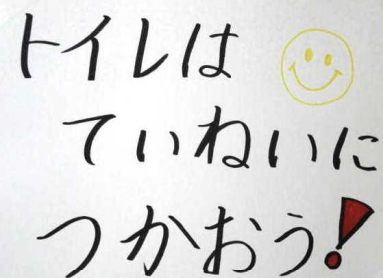 トイレは
ていねいに
つかおう!